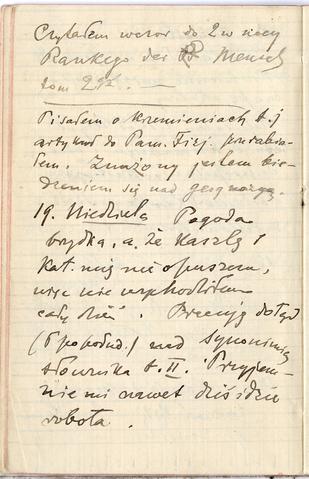 Czytałem wczor. do 2 w nocy
Rankego der Mensch
tom 2gi. —
Pisałem o Krzemieniach t.j.
artykuł do Pam. Fizj. przerabia-
łem. Znużony jestem bie-
dzeniem się nad geognozyą.
19. Niedziela Pogoda
brzydka, a że kaszlę i
kat. mię nie opuszcza,
więc nie wychodziłem
cały dzień. Pracuję dotąd
(6 po połud.) nad synonimią
słownika t. II. Przyjem-
nie mi nawet dziś idzie
robota.